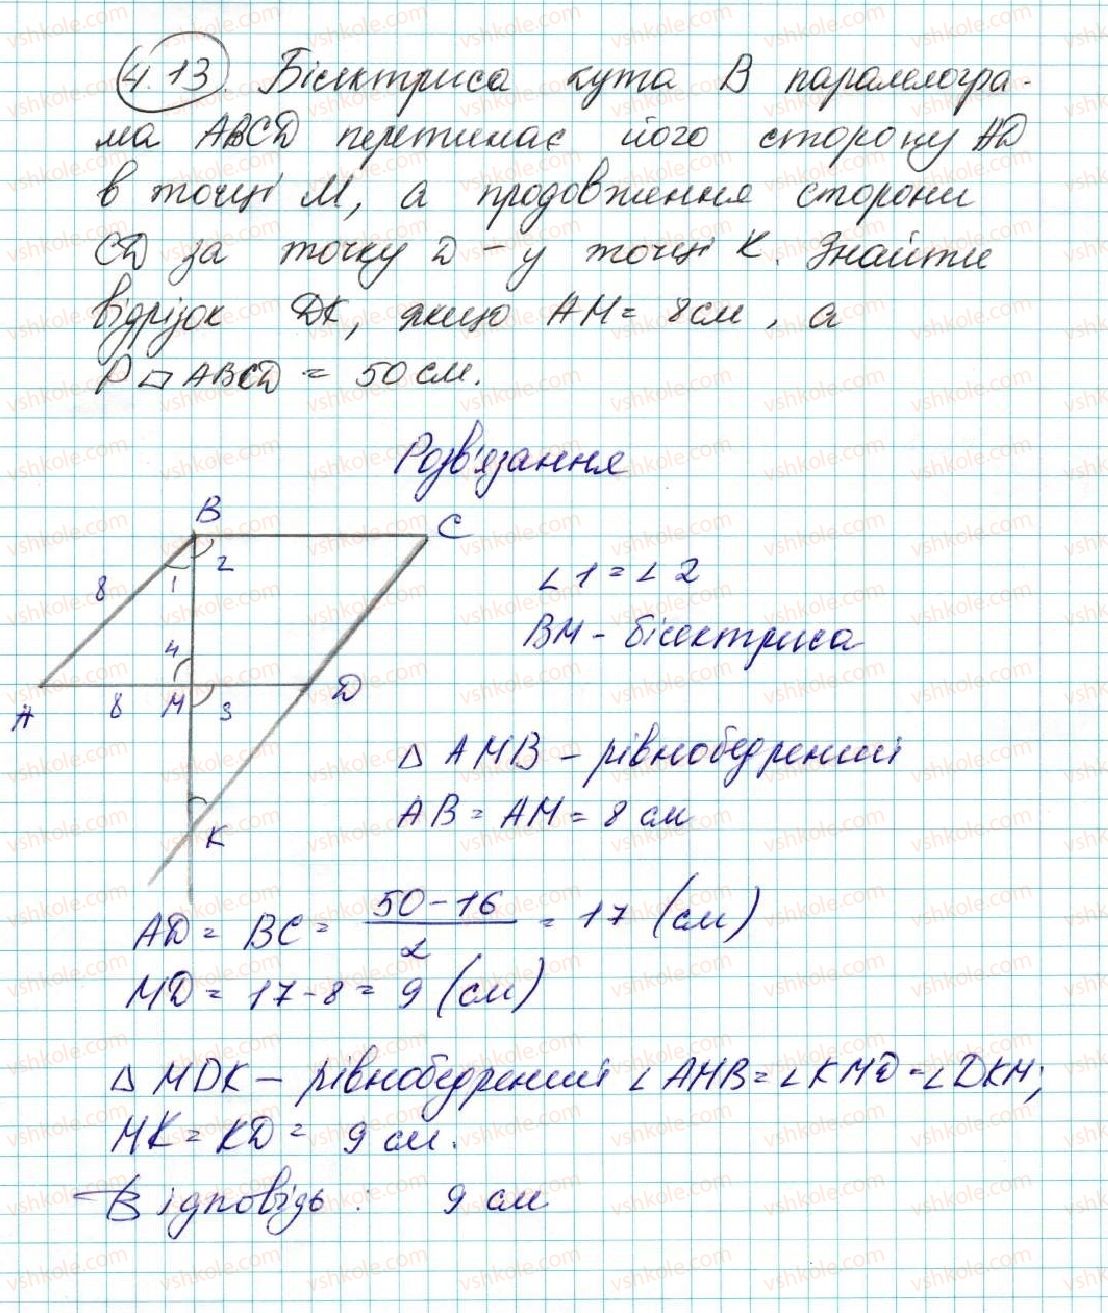 4.13. Бісектриса кута В паралелогра-
ма ABCD перетинає його сторону AD
в точці М, а продовження сторони
CD за точку D – у точці К. Знайти
відрізок DK, якщо AM = 8 см, а
P▱ABCD = 50 см.
Розв'язання
B
C
2
8
1
∠1 = ∠2
BM – бісектриса
4
A
8
M
3
D
△ AMB – рівнобедрений
AB = AM = 8 см
K
AD = BC = (50-16)/2 = 17 (см)
MD = 17-8 = 9 (см)
△ MDK – рівнобедрений ∠AMB = ∠KMD = ∠DKM;
MK = KD = 9 см.
Відповідь: 9 см
vshkole.com